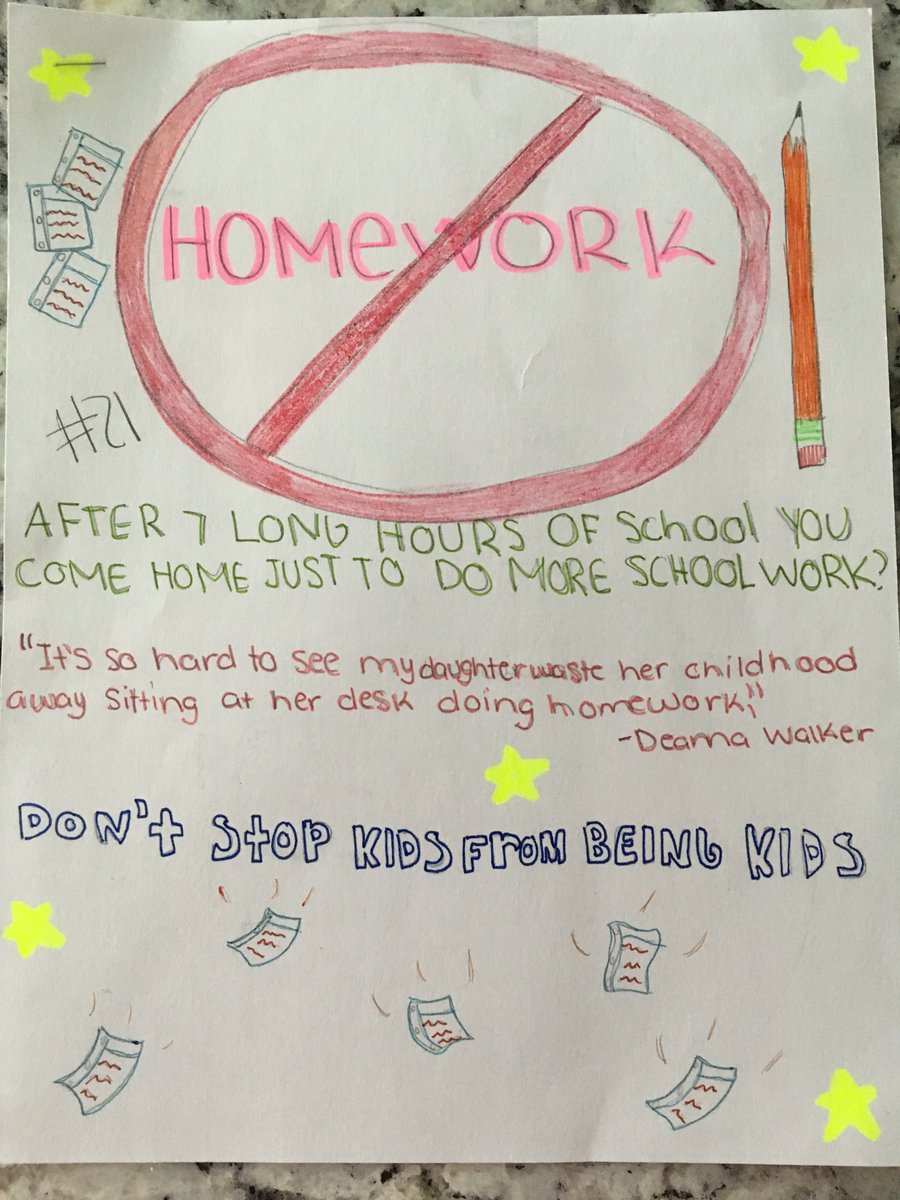 HOMEWORK
#21
AFTER 7 LONG HOURS OF School YOU
COME HOME JUST TO DO MORE SCHOOL WORK?
"It's so hard to see my daughter waste her childhood
away sitting at her desk doing homework,"
-Deanna Walker
DON't StOP KIDS FrOM BEING KIDS